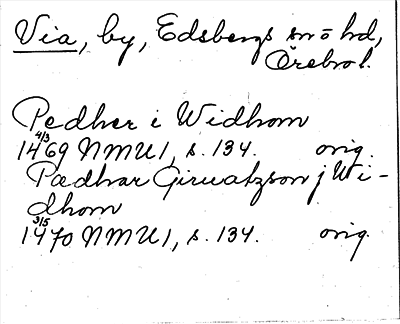 Via, by, Edsbergs sn o hd,
Örebro l.
Pedher i Widhom
4/3
1469 NMU 1, s. 134. orig.
Pædhar Giruatzson j Wi-
dhom
3/5
1470 NMU 1, s. 134. orig.